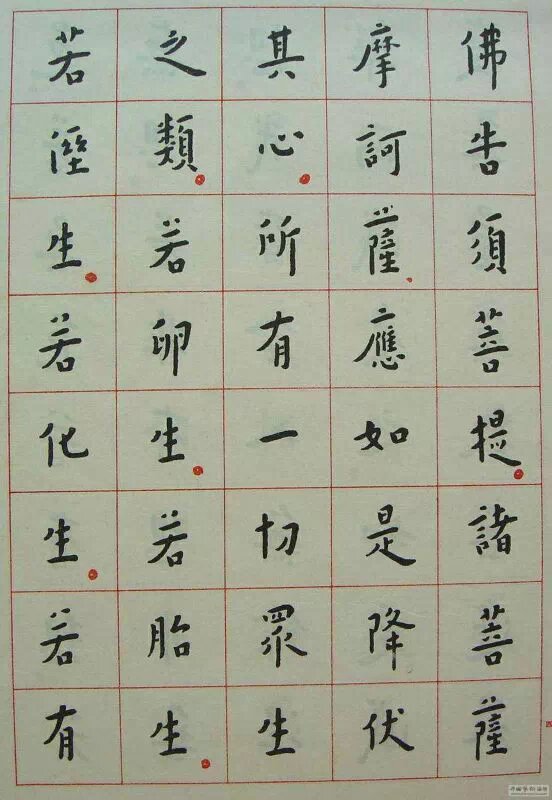 佛告須菩提。諸菩薩
摩訶薩、應如是降伏
其心。所有一切眾生
之類。若卵生。若胎生。
若溼生。若化生。若有